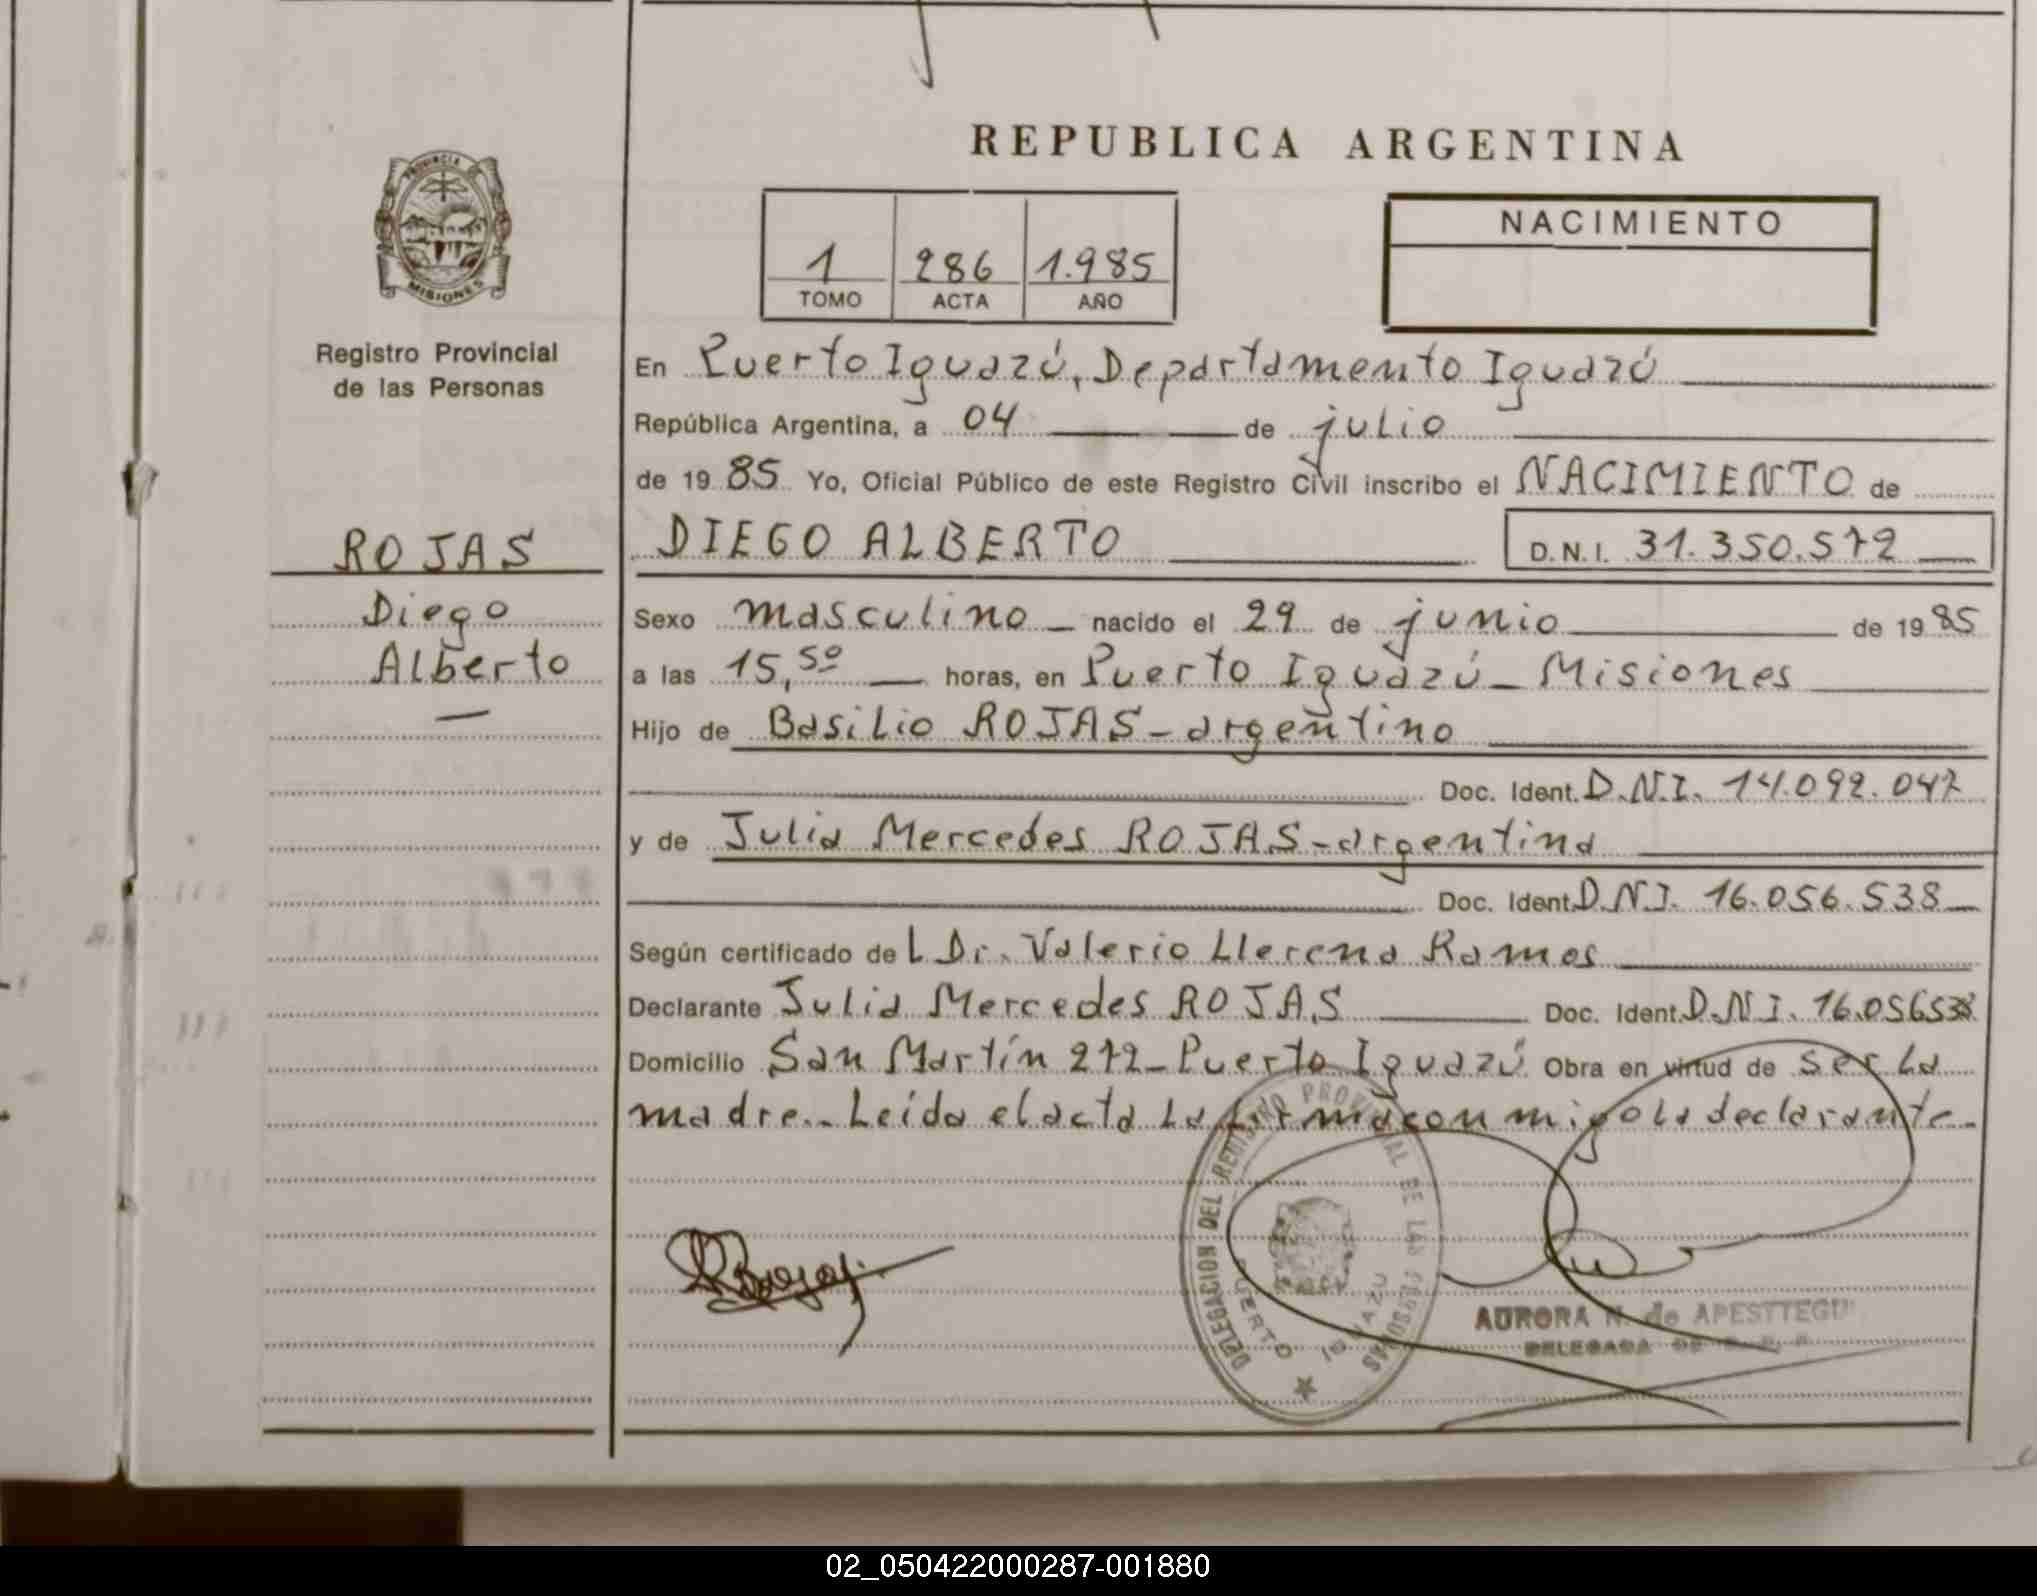 REPUBLICA ARGENTINA
PROVINCIA DE
MISIONES
Registro Provincial
de las Personas
1 286 1.985
TOMO ACTA AÑO
NACIMIENTO
En Puerto Iguazú, Departamento Iguazú
República Argentina, a 04 de julio
de 19 85 Yo, Oficial Público de este Registro Civil inscribo el NACIMIENTO de
ROJAS
Diego
Alberto
DIEGO ALBERTO D.N.I. 31.350.572
Sexo masculino nacido el 29 de junio de 19 85
a las 15,50 horas, en Puerto Iguazú - Misiones
Hijo de Basilio ROJAS - argentino
Doc. Ident. D.N.I. 14.092.047
y de Julia Mercedes ROJAS - argentina
Doc. Ident. D.N.I. 16.056.538
Según certificado de L Dr. Valerio Llerena Ramos
Declarante Julia Mercedes ROJAS Doc. Ident. D.N.I. 16.056538
Domicilio San Martín 272 - Puerto Iguazú Obra en virtud de ser la
madre.- Leída el acta la firma conmigo la declarante.-
DELEGACION DEL REGISTRO PROVINCIAL DE LAS PERSONAS
PUERTO IGUAZU
AURORA N. de APESTTEGUI
DELEGADA DE
02_050422000287-001880